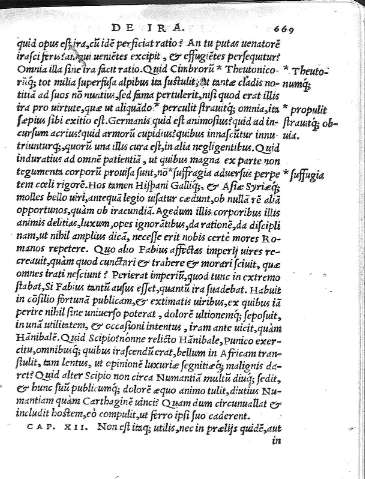 DE IRA. 669
quid opus est ira, cũ idẽ perficiat ratio? An tu putas uenatorẽ
irasci feris? atqui uenietes excipit, & effugiẽtes persequitur?
Omnia illa sine ira facit ratio. Quid Cimbrorũ * Theutonico- * Theuto-
rũq; tot milia superfusa alpibus ita sustulit, ut tantæ cladis no- numq;
titiã ad suos nõ nuntius, sed fama pertulerit, nisi quod erat illis
ira pro uirtute, quæ ut aliquãdo * perculit strauitq; omnia, ita * propulit
sæpius sibi exitio est. Germanis quid est animosius? quid ad in- strauitq; ob-
cursum acrius? quid armorũ cupidius? quibus innascũtur innu- uia.
triunturq;, quorũ una illis cura est, in alia negligentibus. Quid
induratius ad omnẽ patientiã, ut quibus magna ex parte non
tegumenta corporũ prouisa sunt, nõ * suffragia aduersus perpe * suffugia
tem cœli rigorẽ. Hos tamen Hispani Galliq;, & Asiæ Syriæq;
molles bello uiri, antequã legio uisatur cædunt, ob nulla rẽ aliã
opportunos, quàm ob iracundiã. Agedum illis corporibus illis
animis delitias, luxum, opes ignorãtibus, da rationẽ, da discipli
nam, ut nihil amplius dicã, necesse erit nobis certè mores Ro-
manos repetere. Quo alio Fabius affectas imperij uires re-
creauit, quàm quod cunctari & trahere & morari sciuit, quæ
omnes irati nesciunt? Perierat imperiũ, quod tunc in extremo
stabat, Si Fabius tantũ ausus esset, quantũ ira suadebat. Habuit
in cõsilio fortunã publicam, & extimatis uiribus, ex quibus iã
perire nihil sine uniuerso poterat, dolorẽ ultionemq; seposuit,
in unã utilitatem, & occasioni intentus, iram ante uicit, quàm
Hãnibalẽ. Quid Scipio? nõnne relicto Hãnibale, Punico exer-
citu, omnibusq; quibus irascendũ erat, bellum in Africam tran-
stulit, tam lentus, ut opinionẽ luxuriæ segnitiæq; malignis da-
ret? Quid alter Scipio? non circa Numantiã multũ diuq; sedit,
& hunc suũ publicumq; dolorẽ æquo animo tulit, diutius Nu-
mantiam quàm Carthaginẽ uinci? Quam dum circumuallat &
includit hostem, eò compulit, ut ferro ipsi suo caderent.
CAP. XII. Non est itaq; utilis, nec in prælijs quidẽ, aut
in